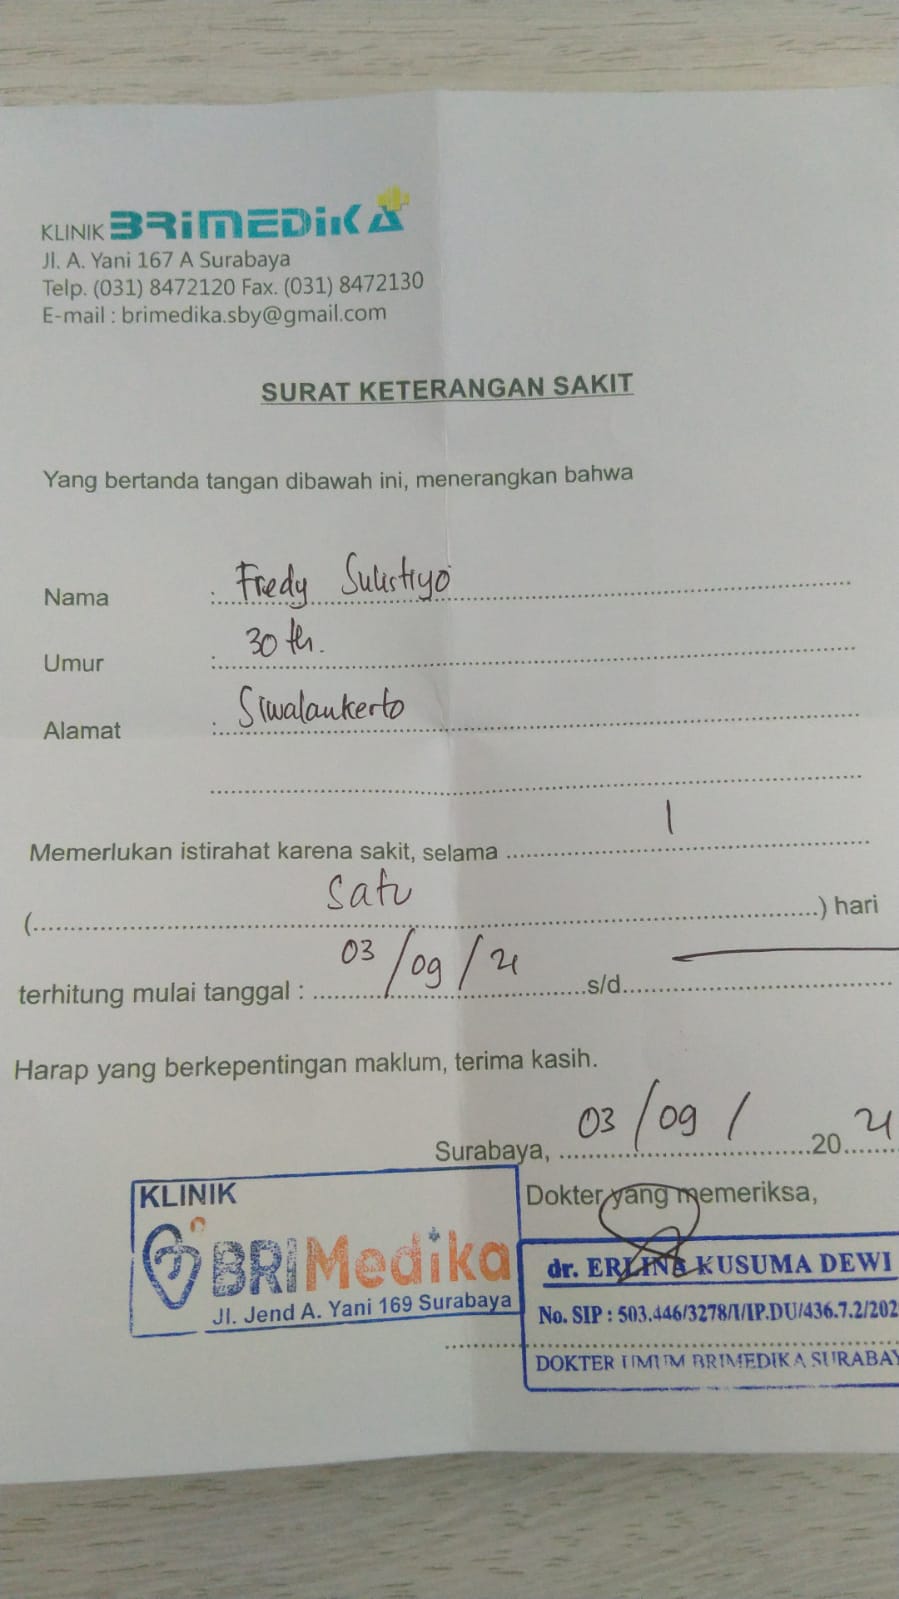 KLINIK BRIMEDIKA
Jl. A. Yani 167 A Surabaya
Telp. (031) 8472120 Fax. (031) 8472130
E-mail : brimedika.sby@gmail.com
SURAT KETERANGAN SAKIT
Yang bertanda tangan dibawah ini, menerangkan bahwa
Nama : Fredy Sulistiyo
Umur : 30 th.
Alamat : Siwalankerto
Memerlukan istirahat karena sakit, selama 1
( satu ) hari
terhitung mulai tanggal : 03/09/21 s/d
Harap yang berkepentingan maklum, terima kasih.
Surabaya, 03/09/ 2021
Dokter yang memeriksa,
KLINIK
BRIMedika
Jl. Jend A. Yani 169 Surabaya
dr. ERLINA KUSUMA DEWI
No. SIP : 503.446/3278/I/IP.DU/436.7.2/202
DOKTER UMUM BRIMEDIKA SURABAY